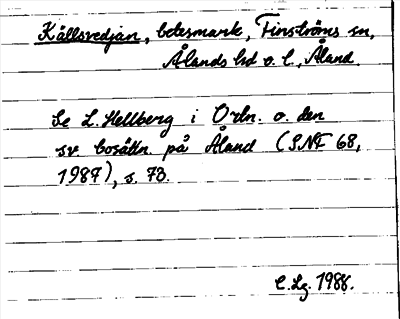 Källsvedjan, betesmark, Finströms sn,
Ålands hd o. l., Åland.
Se L. Hellberg i Ortn. o. den
sv. bosättn. på Åland (SNF 68,
1987), s. 73.
C. Lg. 1988.